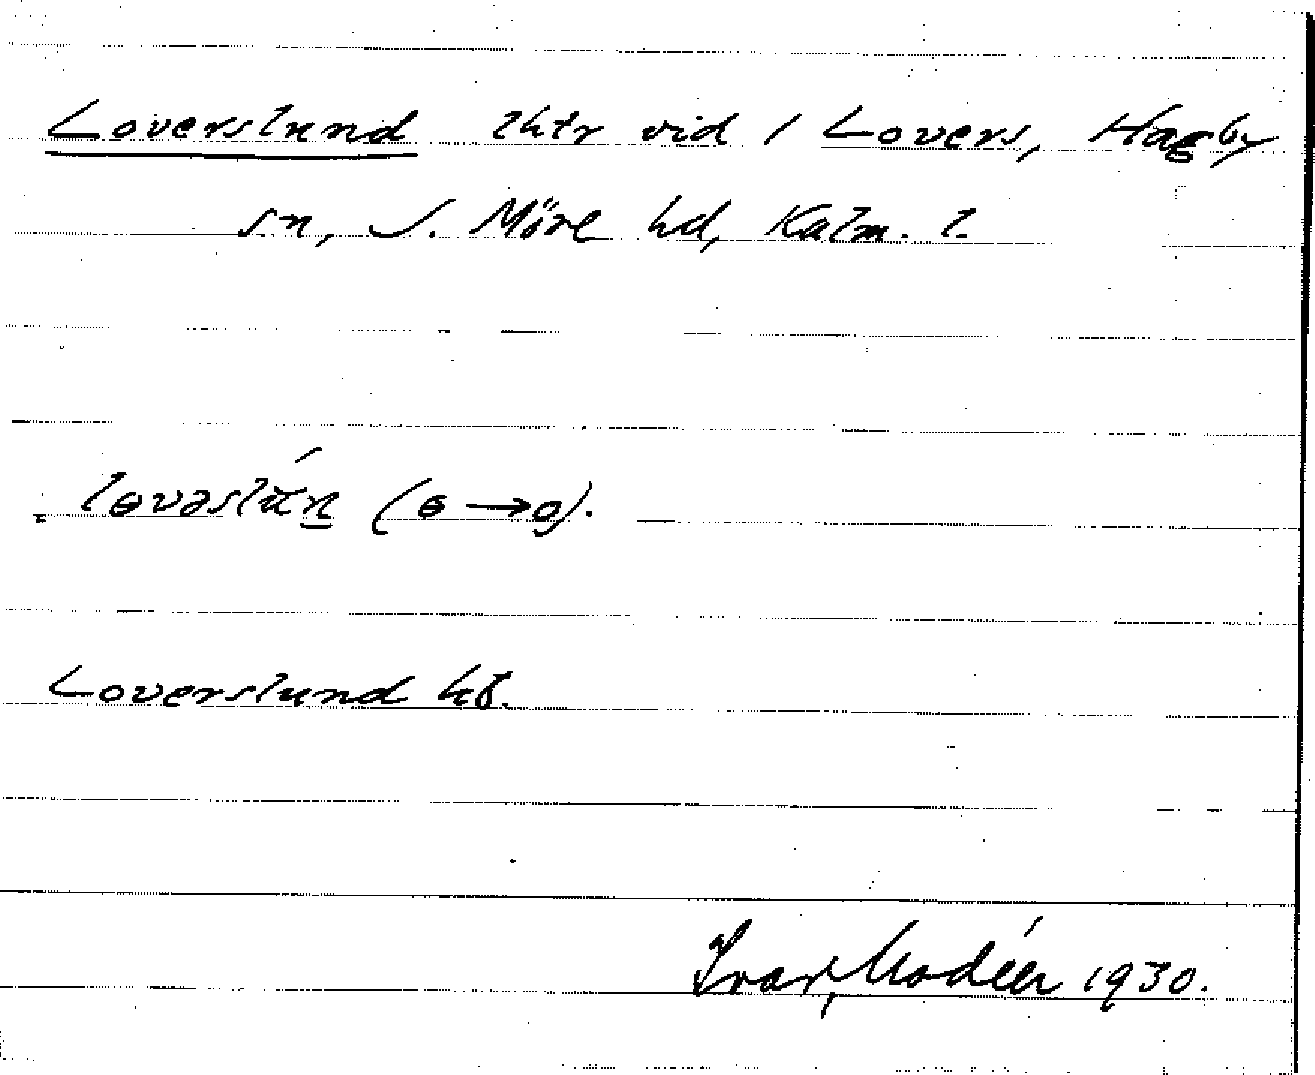 Loverslund lhtr vid 1 Lovers, Hagby
sn, S. Möre hd, Kalm. l.
lɵvəslún (ɵ → o).
Loverslund kb.
Ivar Modéer 1930.